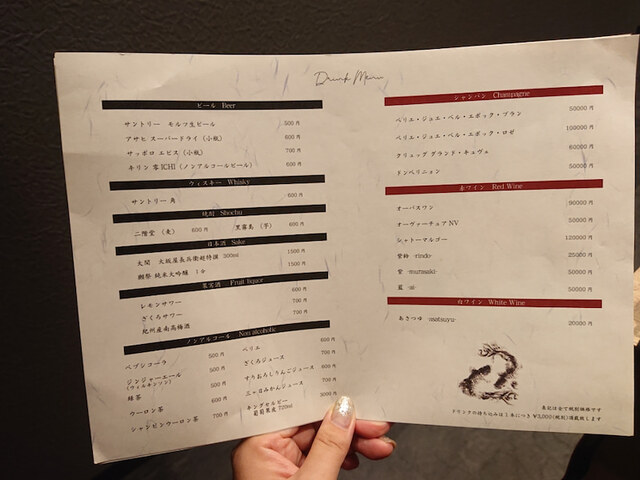 Drink Menu
ビール Beer
サントリー モルツ生ビール 500円
アサヒ スーパードライ (小瓶) 600円
サッポロ エビス (小瓶) 700円
キリン 零ICHI (ノンアルコールビール) 600円
ウィスキー Whisky
サントリー 角 600円
焼酎 Shochu
二階堂 (麦) 600円 黒霧島 (芋) 600円
日本酒 Sake
大関 大坂屋長兵衛超特撰 300ml 1500円
獺祭 純米大吟醸 1合 1500円
果実酒 Fruit liquor
レモンサワー 600円
ざくろサワー 700円
紀州産南高梅酒 700円
ノンアルコール Non alcoholic
ペプシコーラ 500円
ジンジャーエール 500円
(ウィルキンソン)
緑茶 500円
ウーロン茶 600円
シャンピンウーロン茶 700円
ペリエ 600円
ざくろジュース 700円
すりおろしりんごジュース 600円
三ヶ日みかんジュース 700円
キングセルビー 3000円
葡萄果皮 720ml
シャンパン Champagne
ペリエ・ジュエ・ベル・エポック・ブラン 50000円
ペリエ・ジュエ・ベル・エポック・ロゼ 100000円
クリュッグ グランド・キュヴェ 60000円
ドンペリニョン 50000円
赤ワイン Red Wine
オーパスワン 90000円
オーヴァーチュア NV 50000円
シャトーマルゴー 120000円
紫鈴 -rindo- 25000円
紫 -murasaki- 50000円
藍 -ai- 50000円
白ワイン White Wine
あさつゆ -asatsuyu- 20000円
表記は全て税別価格です
ドリンクの持ち込みは1本につき ¥3,000(税別)頂戴致します